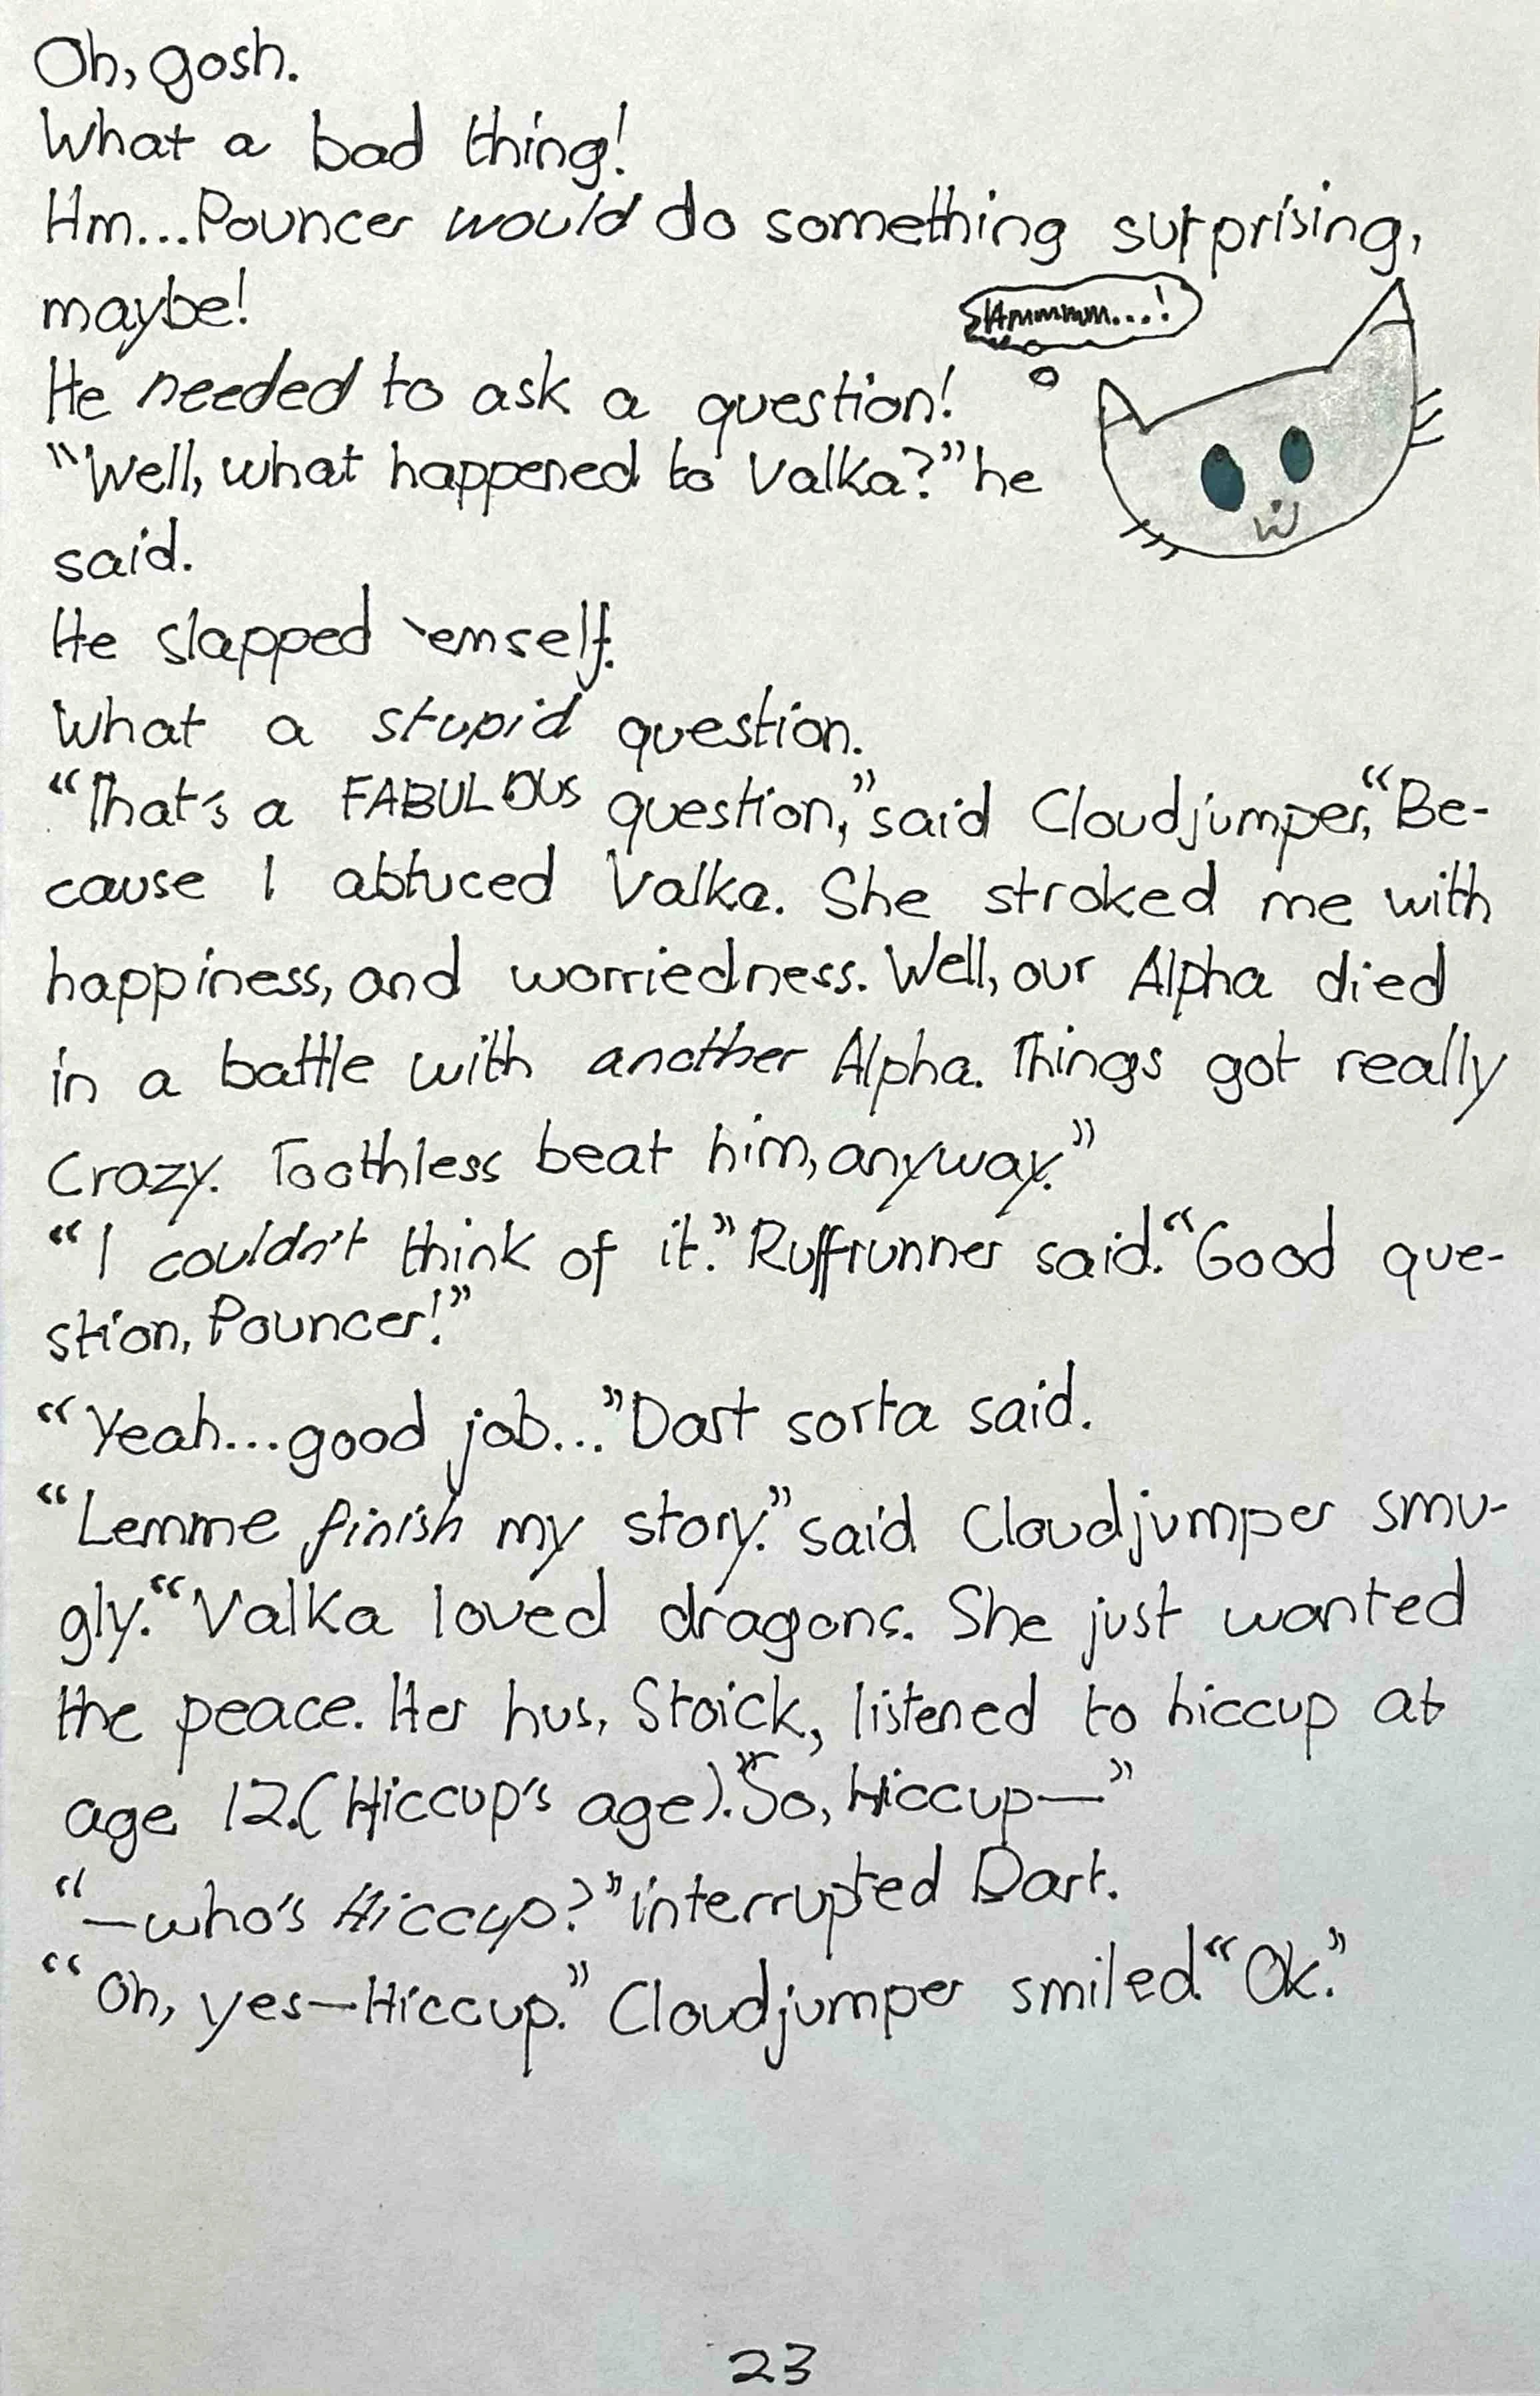 Oh, gosh.
What a bad thing!
Hm...Pouncer would do something surprising,
maybe!
Hmmmmm...!
He needed to ask a question!
"Well, what happened to Valka?" he
said.
He slapped 'emself.
What a stupid question.
"That's a FABULOUS question," said Cloudjumper, "Be-
cause I abtuced Valka. She stroked me with
happiness, and worriedness. Well, our Alpha died
in a battle with another Alpha. Things got really
crazy. Toothless beat him, anyway."
"I couldn't think of it." Ruffrunner said. "Good que-
stion, Pouncer!"
"Yeah...good job..." Dart sorta said.
"Lemme finish my story." said Cloudjumper smu-
gly. "Valka loved dragons. She just wanted
the peace. Her hus, Stoick, listened to hiccup at
age 12.(Hiccup's age)." "So, Hiccup—"
"—who's Hiccup?" interrupted Dart.
"Oh, yes—Hiccup." Cloudjumper smiled. "Ok."
23